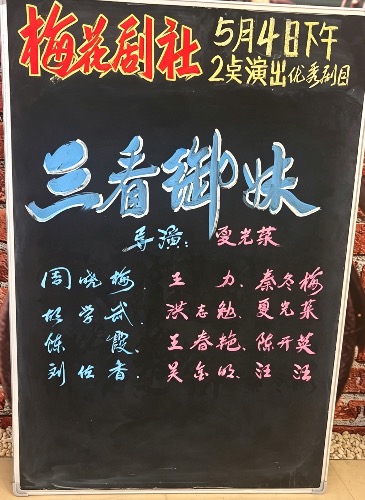 梅花剧社
5月4日下午
2点演出优秀剧目
三看御妹
导演: 夏光荣
周晓梅、王 力、秦冬梅
胡学武、洪志勉、夏光荣
陈 霞、王春艳、陈开英
刘仕香、吴金明、汪 汪